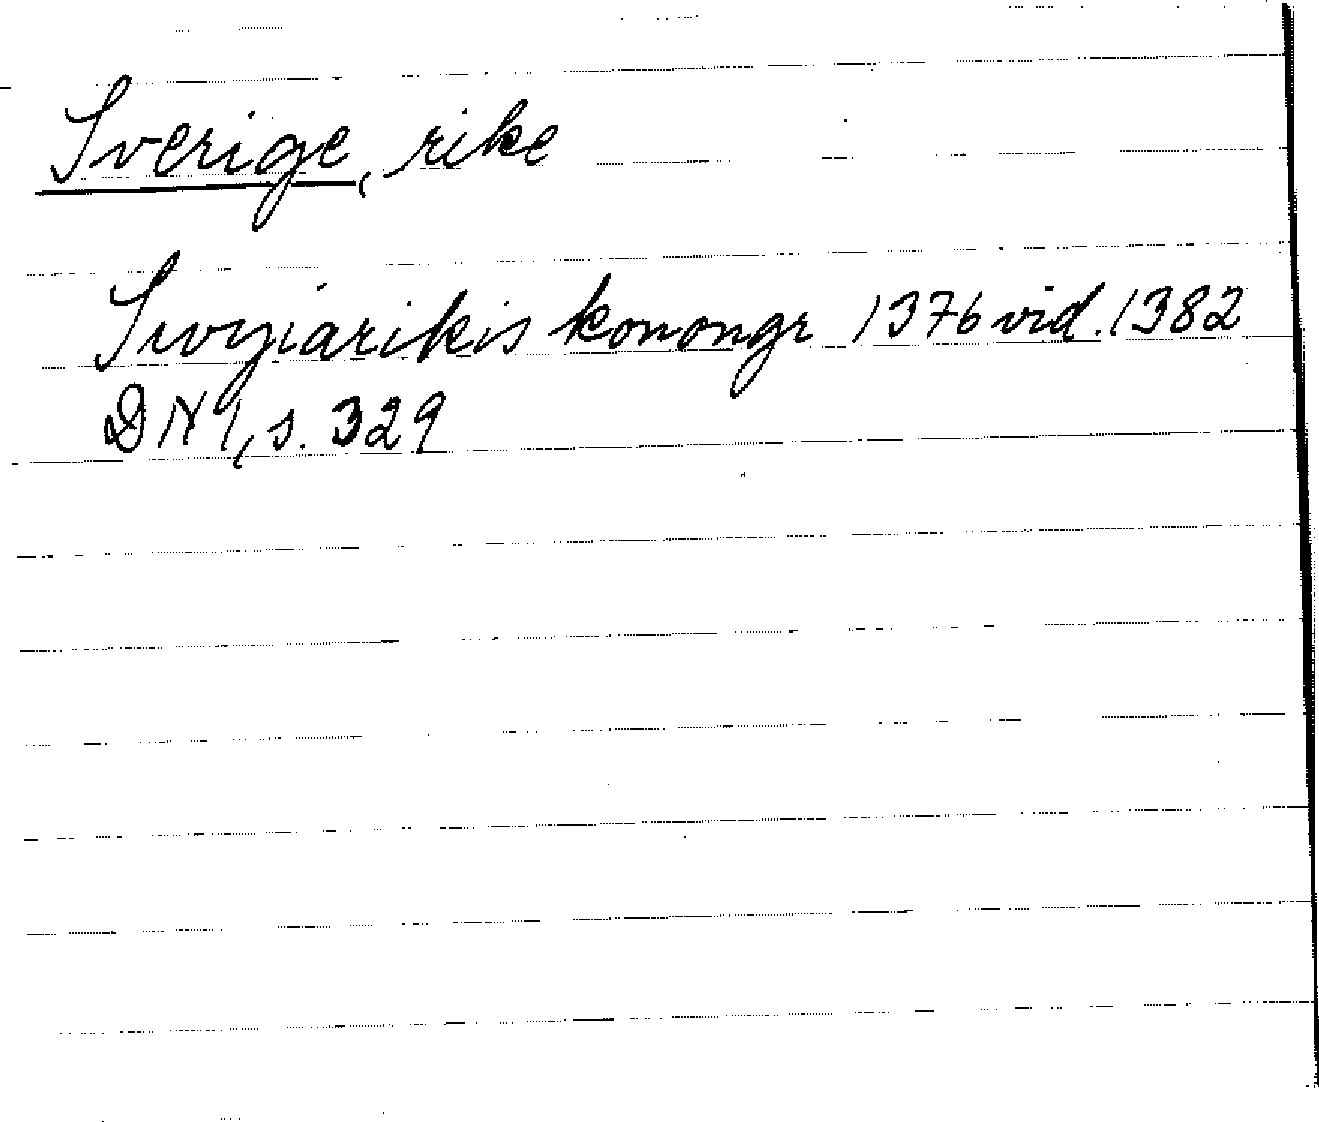 Sverige, rike
Swyiarikis konongr 1376 vid. 1382
DN 1, s. 329